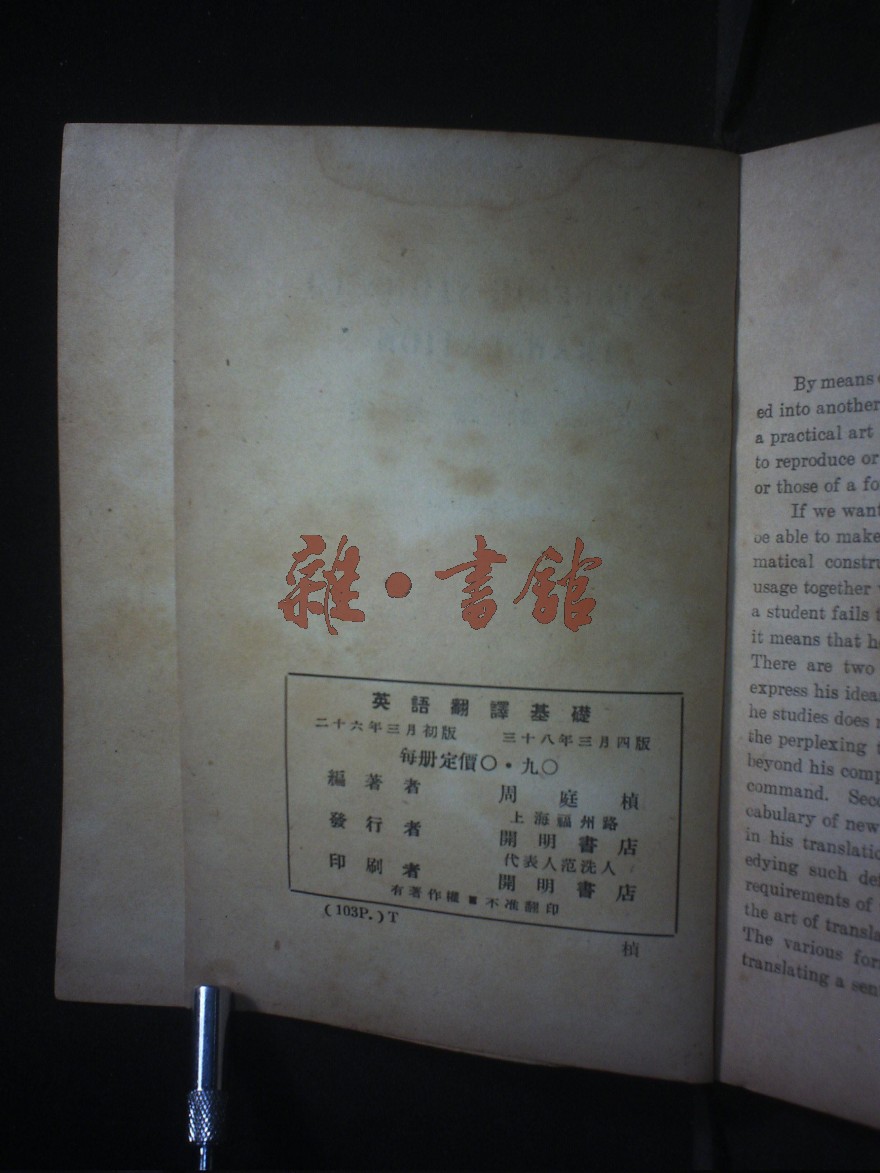 雜•書館
英語翻譯基礎
二十六年三月初版 三十八年三月四版
每册定價〇·九〇
編著者 周庭楨
發行者 上海福州路 開明書店 代表人范洗人
印刷者 開明書店
有著作權 不准翻印
(103P.)T
楨
By means
ed into another
a practical art
to reproduce or
or those of a fo
If we want
be able to make
matical constru
usage together
a student fails
it means that h
There are two
express his idea
he studies does
the perplexing
beyond his comp
command. Seco
cabulary of new
in his translatio
edying such def
requirements of
the art of transla
The various for
translating a sen